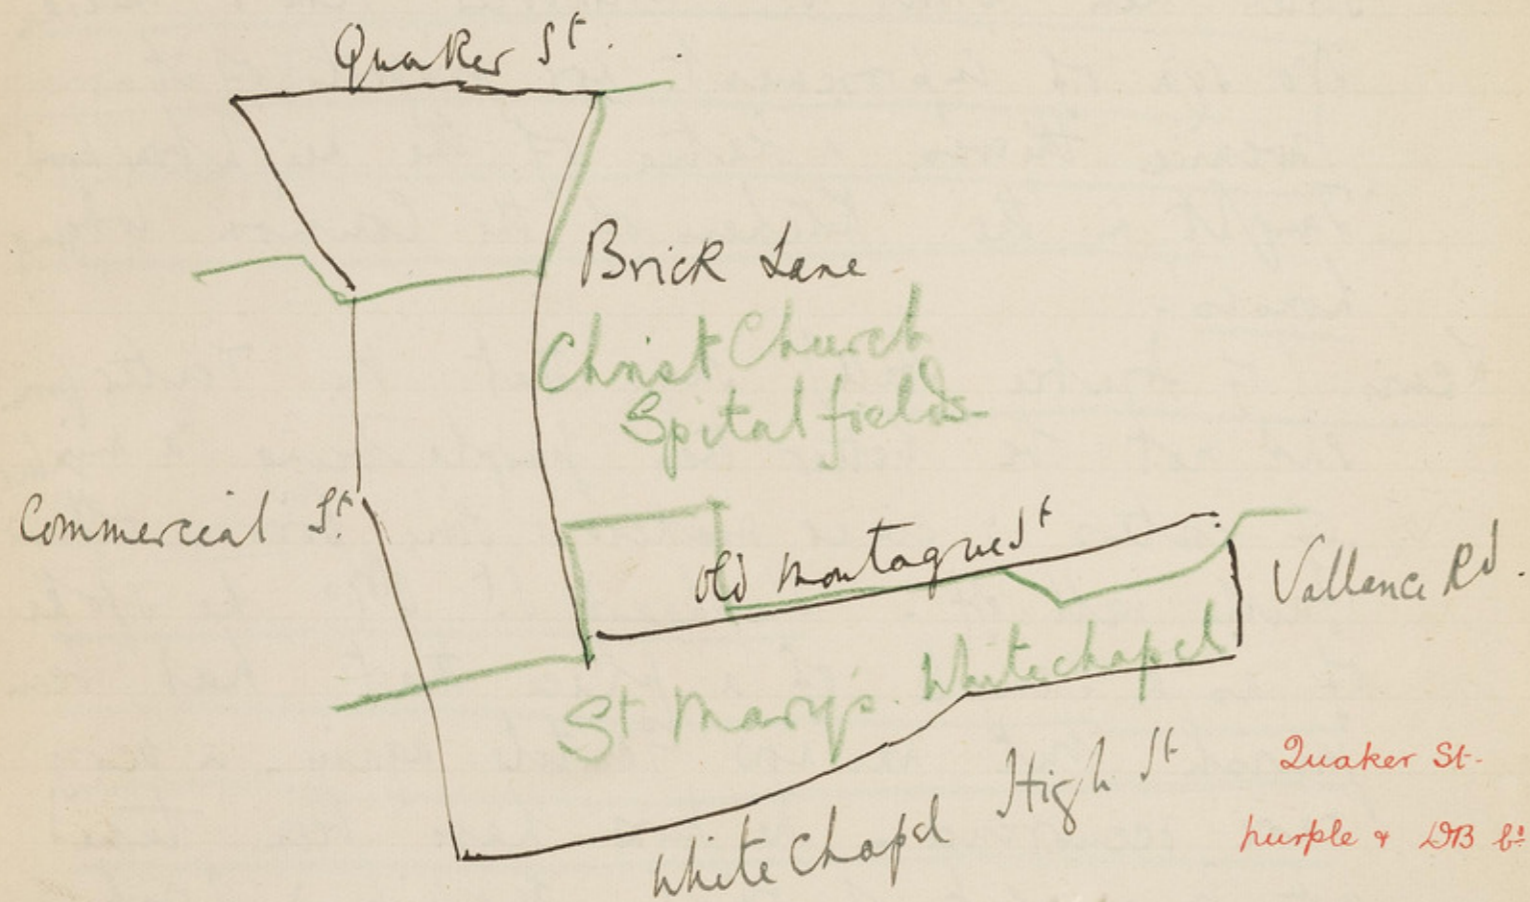 Quaker St.
Brick Lane
Christ Church
Spitalfields
Commercial St.
Old Montague St
Vallance Rd.
St Mary's Whitechapel
White Chapel High St
Quaker St.
purple & DB